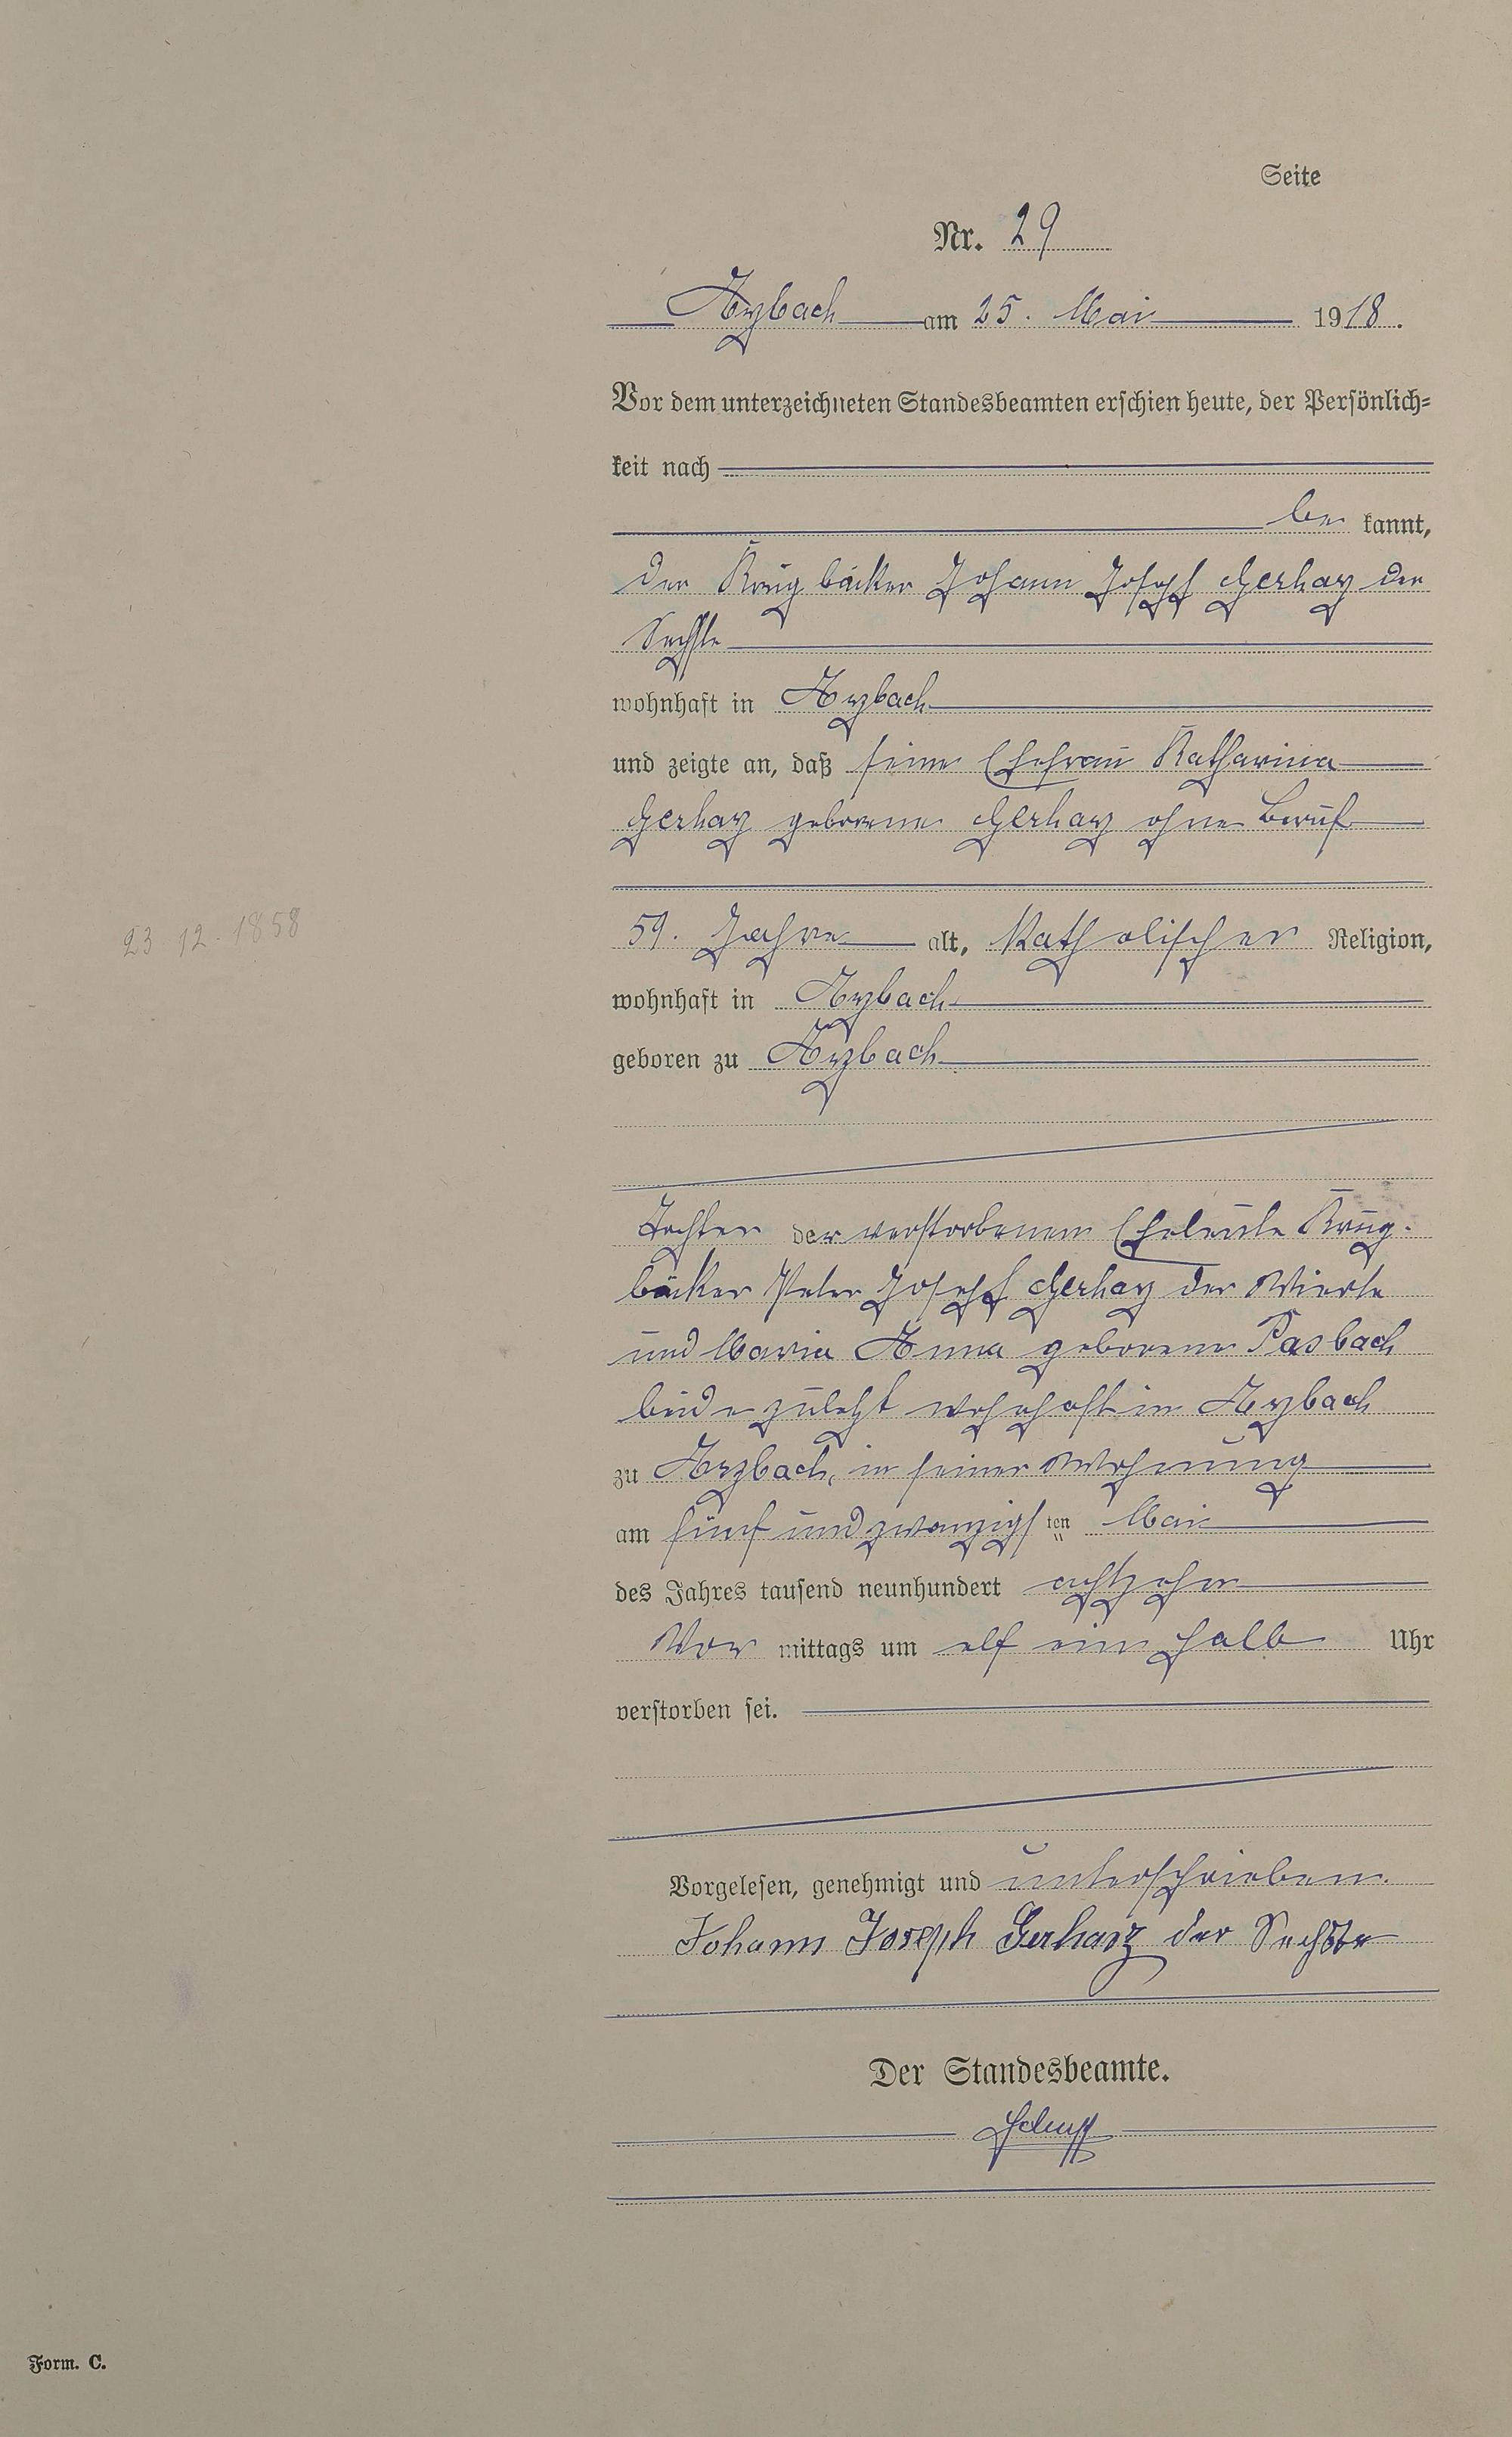 Seite
Nr. 29
Arzbach am 25. Mai 1918.
Vor dem unterzeichneten Standesbeamten erschien heute, der Persönlich-
keit nach
be kannt,
der Krugbäcker Johann Joseph Gerharz der
Sechste
wohnhaft in Arzbach
und zeigte an, daß seine Ehefrau Katharina
Gerharz geborene Gerharz ohne Beruf
23.12.1858
59. Jahre alt, Katholischer Religion,
wohnhaft in Arzbach
geboren zu Arzbach
Tochter der verstorbenen Eheleute Krug-
bäcker Peter Joseph Gerharz der Vierte
und Maria Anna geborene Pasbach
beide zuletzt wohnhaft in Arzbach
zu Arzbach, in seiner Wohnung
am fünf und zwanzigsten Mai
des Jahres tausend neunhundert achtzehn
Vor mittags um elf ein halb Uhr
verstorben sei.
Vorgelesen, genehmigt und unterschrieben.
Johann Joseph Gerharz der Sechste
Der Standesbeamte.
Form. C.